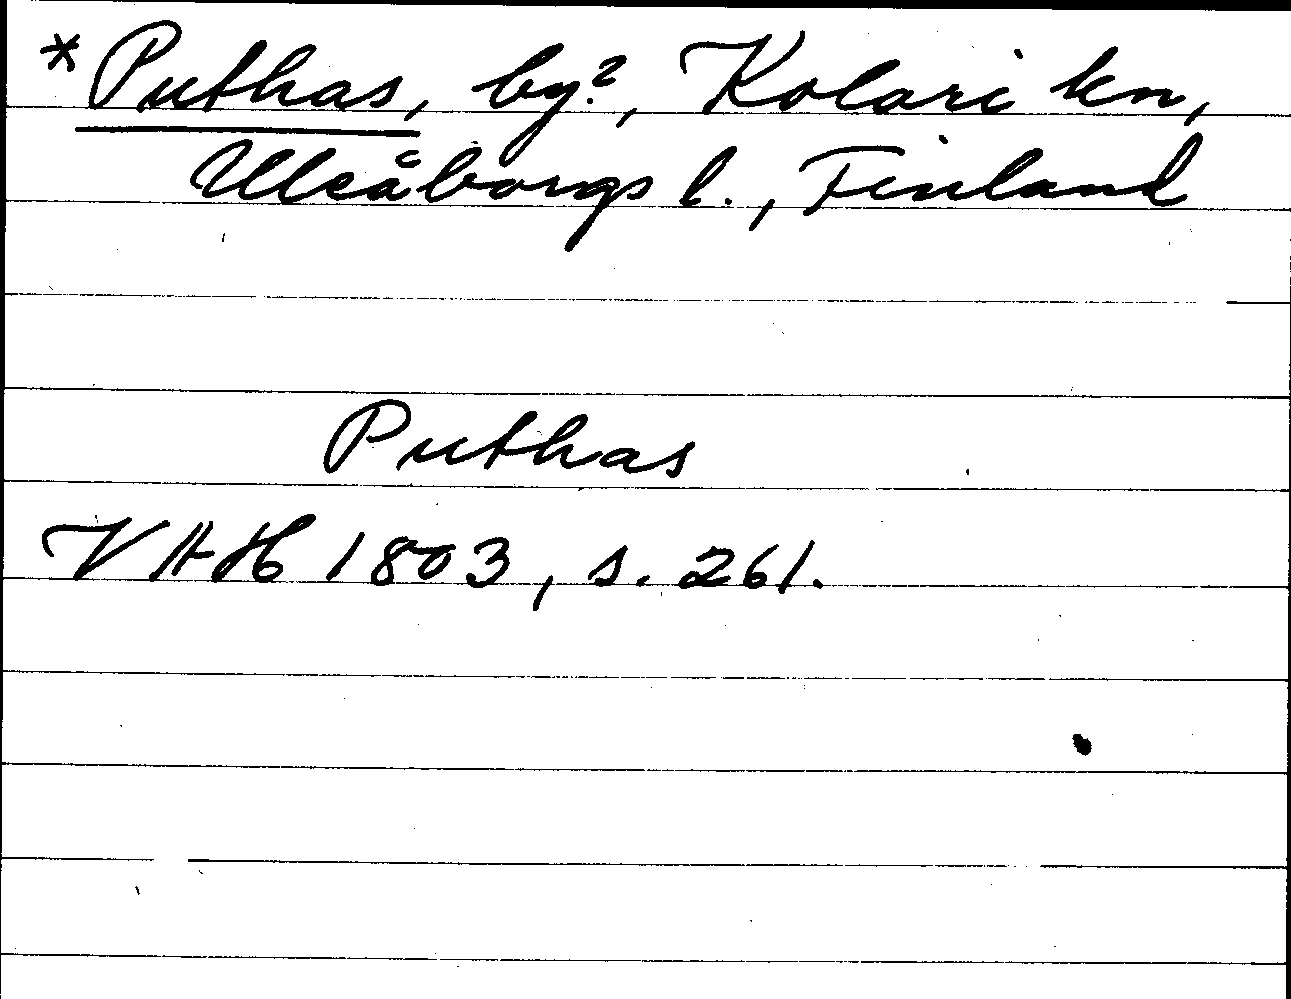 *Puthas, by?, Kolari kn,
Uleåborgs l., Finland
Puthas
VAH 1803, s. 261.